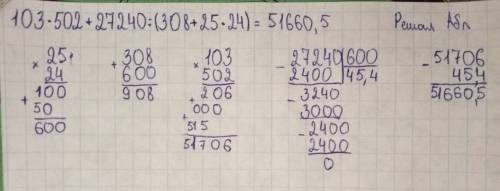 103·502+27240:(308+25·24)= 51660,5 Решал
× 25
24
+ 100
50
600
+ 308
600
908
× 103
502
+ 206
+ 000
515
51706
- 27240 | 600
2400 | 45,4
- 3240
3000
- 2400
2400
0
- 51706
454
51660,5